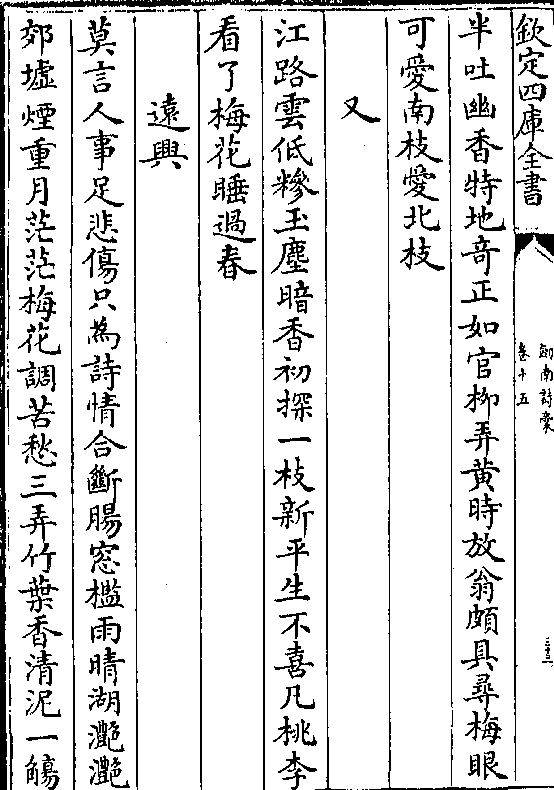 欽定四庫全書
劍南詩稾
卷十五
三十三
半吐幽香特地奇正如官柳弄黃時放翁頗具尋梅眼
可愛南枝愛北枝
又
江路雲低糝玉塵暗香初探一枝新平生不喜凡桃李
看了梅花睡過春
遠興
莫言人事足悲傷只為詩情合斷腸窓檻雨晴湖灔灔
郊墟煙重月茫茫梅花調苦愁三弄竹葉香清泥一觴